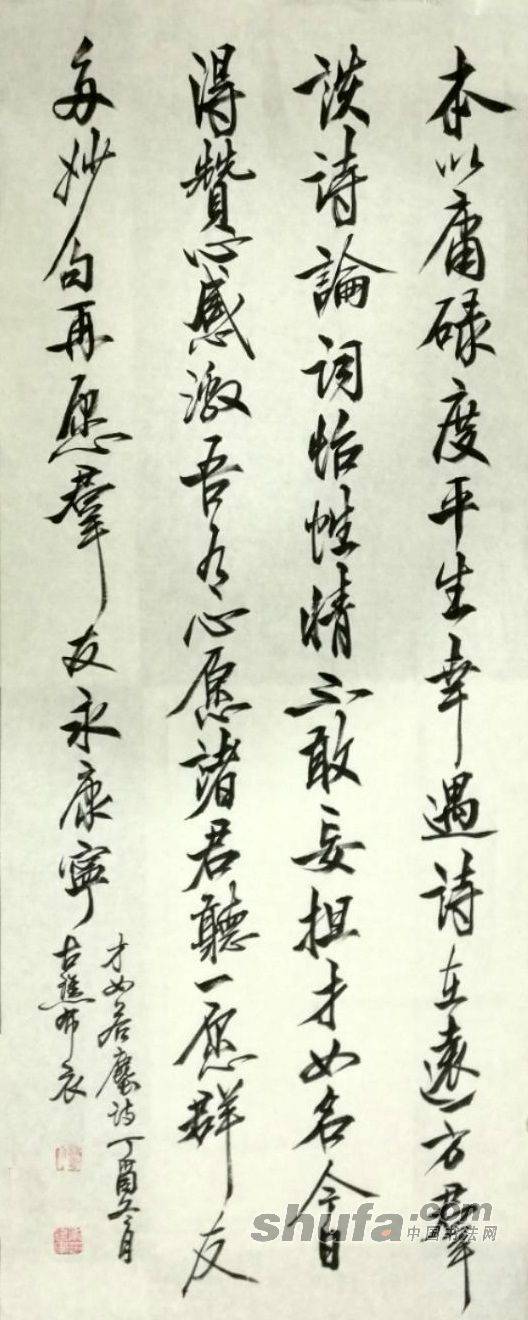 本以庸碌度平生幸遇詩在遠方羣
談詩論詞怡性情不敢妄担才女名今日
得贊心感激吾有心愿諸君聽一愿群友
多妙句再愿羣友永康寧
才女若詩丁酉五月
古譙布衣
shufa.com
中国书法网